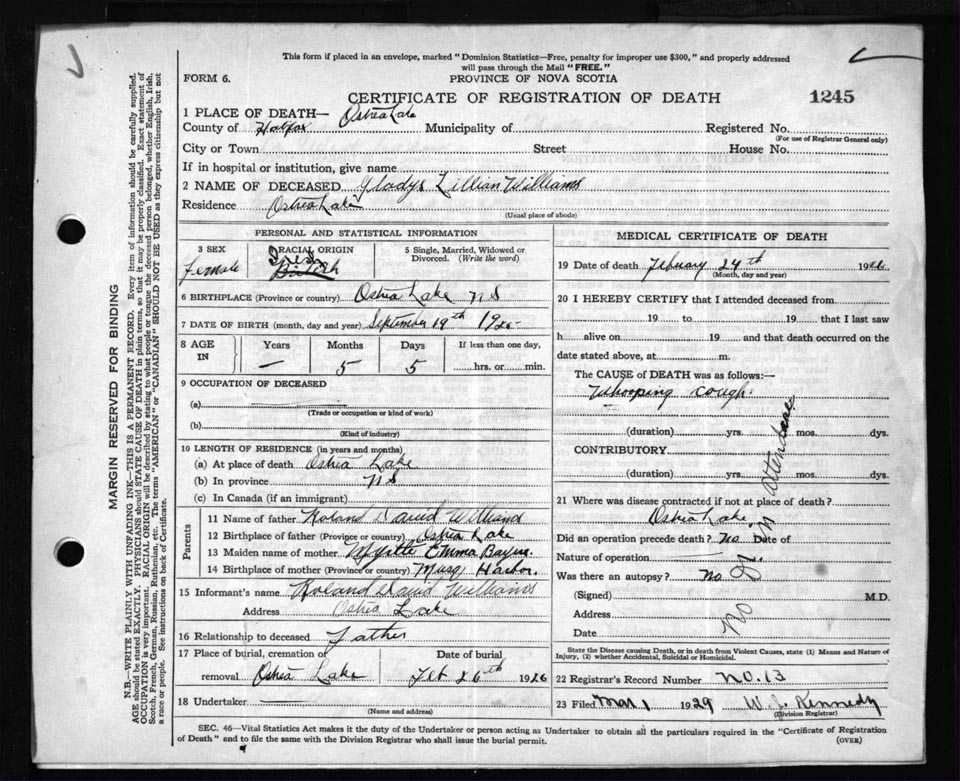 This form if placed in an envelope, marked "Dominion Statistics—Free, penalty for improper use $300," and properly addressed
will pass through the Mail "FREE."
FORM 6.
PROVINCE OF NOVA SCOTIA
CERTIFICATE OF REGISTRATION OF DEATH
1245
1 PLACE OF DEATH— Ostrea Lake
County of Halifax Municipality of Registered No.
(For use of Registrar General only)
City or Town Street House No.
If in hospital or institution, give name
2 NAME OF DECEASED Gladys Lillian Williams
Residence Ostrea Lake
(Usual place of abode)
PERSONAL AND STATISTICAL INFORMATION
3 SEX
female
RACIAL ORIGIN
Irish
British
5 Single, Married, Widowed or
Divorced. (Write the word)
6 BIRTHPLACE (Province or country) Ostrea Lake NS
7 DATE OF BIRTH (month, day and year) September 19th 1925
8 AGE
IN
Years Months Days If less than one day,
— 5 5 hrs. or min.
9 OCCUPATION OF DECEASED
(a)
(Trade or occupation or kind of work)
(b)
(Kind of industry)
10 LENGTH OF RESIDENCE (in years and months)
(a) At place of death Ostrea Lake
(b) In province NS
(c) In Canada (if an immigrant)
Parents
11 Name of father Roland David Williams
12 Birthplace of father (Province or country) Ostrea Lake
13 Maiden name of mother Myrtle Emma
14 Birthplace of mother (Province or country) Musq Harbor.
15 Informant's name Roland David Williams
Address Ostrea Lake
16 Relationship to deceased Father
17 Place of burial, cremation or Date of burial
removal Ostrea Lake Feb 26th 1926
18 Undertaker
(Name and address)
MEDICAL CERTIFICATE OF DEATH
19 Date of death February 24th 1926
(Month, day and year)
20 I HEREBY CERTIFY that I attended deceased from
19 to 19 that I last saw
h alive on 19 and that death occurred on the
date stated above, at m.
The CAUSE of DEATH was as follows:—
Whooping cough.
(duration) yrs. mos. dys.
CONTRIBUTORY
(duration) yrs. mos. dys.
21 Where was disease contracted if not at place of death?
Ostrea Lake.
Did an operation precede death? No Date of
Nature of operation
Was there an autopsy? No
(Signed) M.D.
Address
Date
No Dr. in attendance
State the Disease causing Death, or in death from Violent Causes, state (1) Means and Nature of
Injury, (2) whether Accidental, Suicidal or Homicidal.
22 Registrar's Record Number No. 13
23 Filed Mar 1 1929 W. J. Kennedy
(Division Registrar)
SEC. 46—Vital Statistics Act makes it the duty of the Undertaker or person acting as Undertaker to obtain all the particulars required in the "Certificate of Registration
of Death" and to file the same with the Division Registrar who shall issue the burial permit.
(OVER)
MARGIN RESERVED FOR BINDING
N.B.—WRITE PLAINLY WITH UNFADING INK—THIS IS A PERMANENT RECORD. Every item of information should be carefully supplied.
AGE should be stated EXACTLY. PHYSICIANS should STATE CAUSE OF DEATH in plain terms, so that it may be properly classified. Exact statement of
OCCUPATION is very important. RACIAL ORIGIN will be described by stating to what people or tongue the deceased person belonged, whether English, Irish,
Scotch, French, German, Russian, Ruthenian, etc. The terms "AMERICAN" or "CANADIAN" SHOULD NOT BE USED as they express citizenship but not
a race or people. See instructions on back of Certificate.